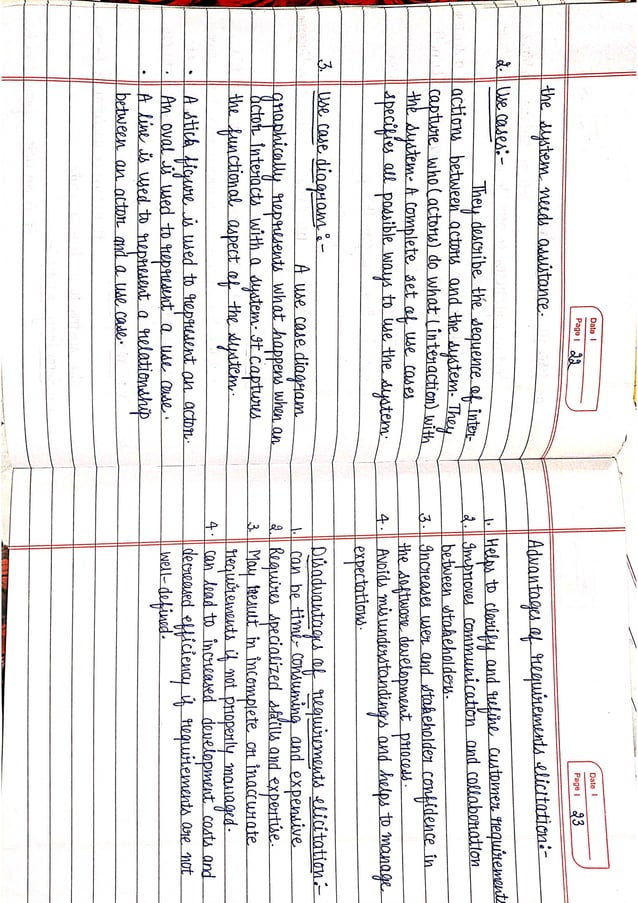 Date |
Page | 22
the system needs assistance.
2. Use cases:-
They describe the sequence of inter-
actions between actors and the system. They
capture who (actors) do what (interaction) with
the system. A complete set of use cases
specifies all possible ways to use the system.
3. Use case diagram:-
A use case diagram
graphically represents what happens when an
actor interacts with a system. It captures
the functional aspect of the system.
• A stick figure is used to represent an actor.
• An oval is used to represent a use case.
• A line is used to represent a relationship
between an actor and a use case.
Date |
Page | 23
Advantages of requirements elicitation:-
1. Helps to clarify and refine customer requirements
2. Improves communication and collaboration
between stakeholders.
3. Increases user and stakeholder confidence in
the software development process.
4. Avoids misunderstandings and helps to manage
expectations.
Disadvantages of requirements elicitation:-
1. can be time-consuming and expensive
2. Requires specialized skills and expertise.
3. May result in incomplete or inaccurate
requirements if not properly managed.
4. can lead to increased development costs and
decreased efficiency if requirements are not
well-defined.